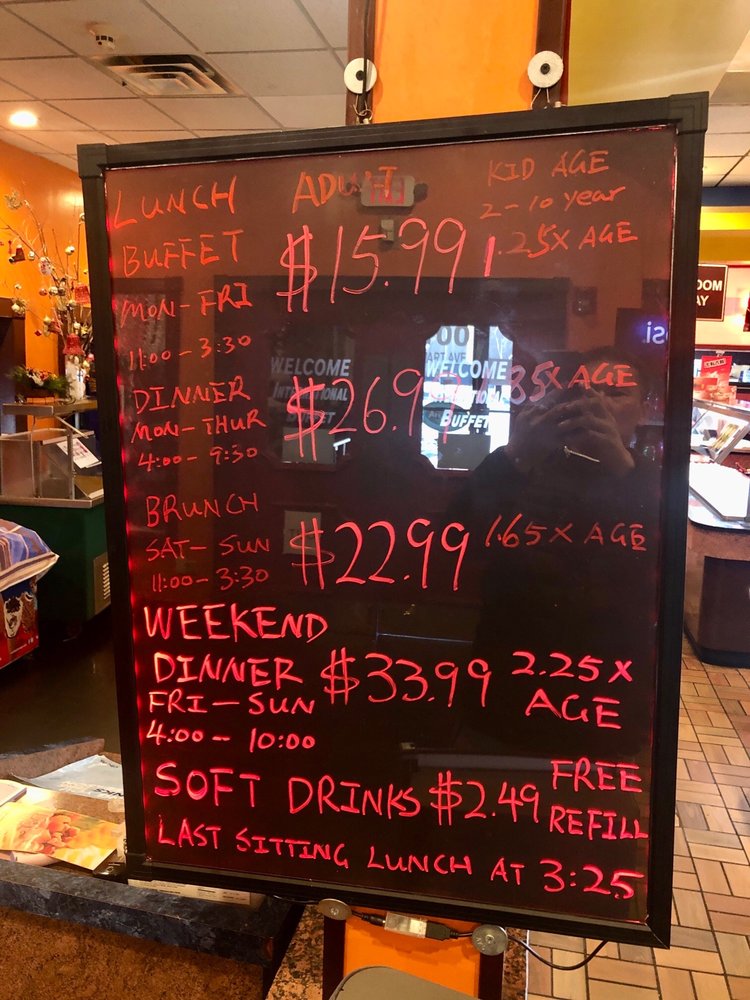 LUNCH ADULT KID AGE
2-10 year
BUFFET $15.99 1.25X AGE
MON-FRI
11:00-3:30
DINNER $26.99 1.85X AGE
MON-THUR
4:00-9:30
BRUNCH
SAT-SUN $22.99 1.65X AGE
11:00-3:30
WEEKEND
DINNER $33.99 2.25X
FRI-SUN AGE
4:00-10:00
SOFT DRINKS $2.49 FREE
REFILL
LAST SITTING LUNCH AT 3:25
WELCOME
INTERNATIONAL
BUFFET
WELCOME
BUFFET